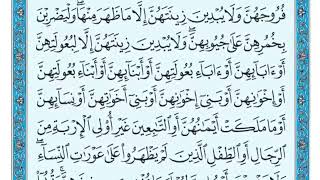 فُرُوجَهُنَّ وَلَا يُبْدِينَ زِينَتَهُنَّ إِلَّا مَا ظَهَرَ مِنْهَا ۖ وَلْيَضْرِبْنَ
بِخُمُرِهِنَّ عَلَىٰ جُيُوبِهِنَّ ۖ وَلَا يُبْدِينَ زِينَتَهُنَّ إِلَّا لِبُعُولَتِهِنَّ
أَوْ ءَابَآئِهِنَّ أَوْ ءَابَآءِ بُعُولَتِهِنَّ أَوْ أَبْنَآئِهِنَّ أَوْ أَبْنَآءِ بُعُولَتِهِنَّ
أَوْ إِخْوَٰنِهِنَّ أَوْ بَنِىٓ إِخْوَٰنِهِنَّ أَوْ بَنِىٓ أَخَوَٰتِهِنَّ أَوْ نِسَآئِهِنَّ
أَوْ مَا مَلَكَتْ أَيْمَٰنُهُنَّ أَوِ ٱلتَّٰبِعِينَ غَيْرِ أُو۟لِى ٱلْإِرْبَةِ مِنَ
ٱلرِّجَالِ أَوِ ٱلطِّفْلِ ٱلَّذِينَ لَمْ يَظْهَرُوا۟ عَلَىٰ عَوْرَٰتِ ٱلنِّسَآءِ ۖ